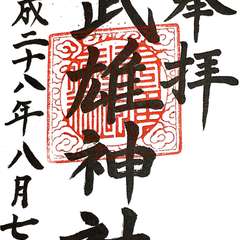 奉拝
武雄神社
成二十八年八月七